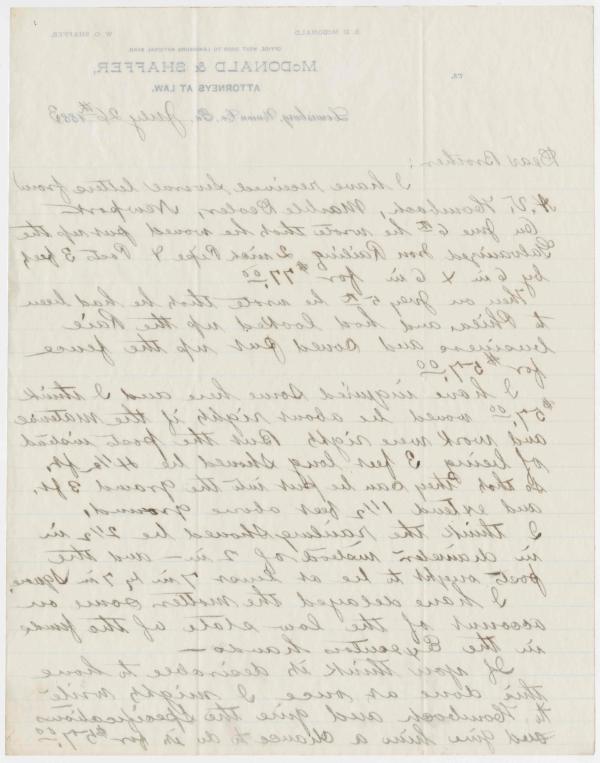 S. D. McDONALD. W. O. SHAFFER.
OFFICE, WEST DOOR TO LEWISBURG NATIONAL BANK.
McDONALD & SHAFFER,
ATTORNEYS AT LAW.
Lewisburg, Union Co., Pa. July 26th 1883
Dear Brother:
I have received several letters from
Hombach, Marble Dealer, Newport
On June 6th he wrote that he would put up the
Galvanized Iron Railing 2 inch Pipe & Post 3 feet
by 6 in x 6 in for $77.00
Then on July 5th he wrote that he had been
to Phila and had looked up the Rail
business and would put up the fence
for $57.00
I have inquired some here and I think
$57.00 would be about right if the material
and work were right But the post instead
of being 3 feet long should be 4½ ft.
so that they can be put into the ground 3 ft.
and extend 1½ feet above ground.
I think the railing should be 2½ in
in diameter instead of 2 in — and the
post ought to be at least 7 in by 7 in square.
I have delayed the matter some on
account of the low state of the funds
in the Executors hands —
If you think it desirable to have
this done at once I might write
to Hombach and give the specifications
and give him a chance to do it for $57.00